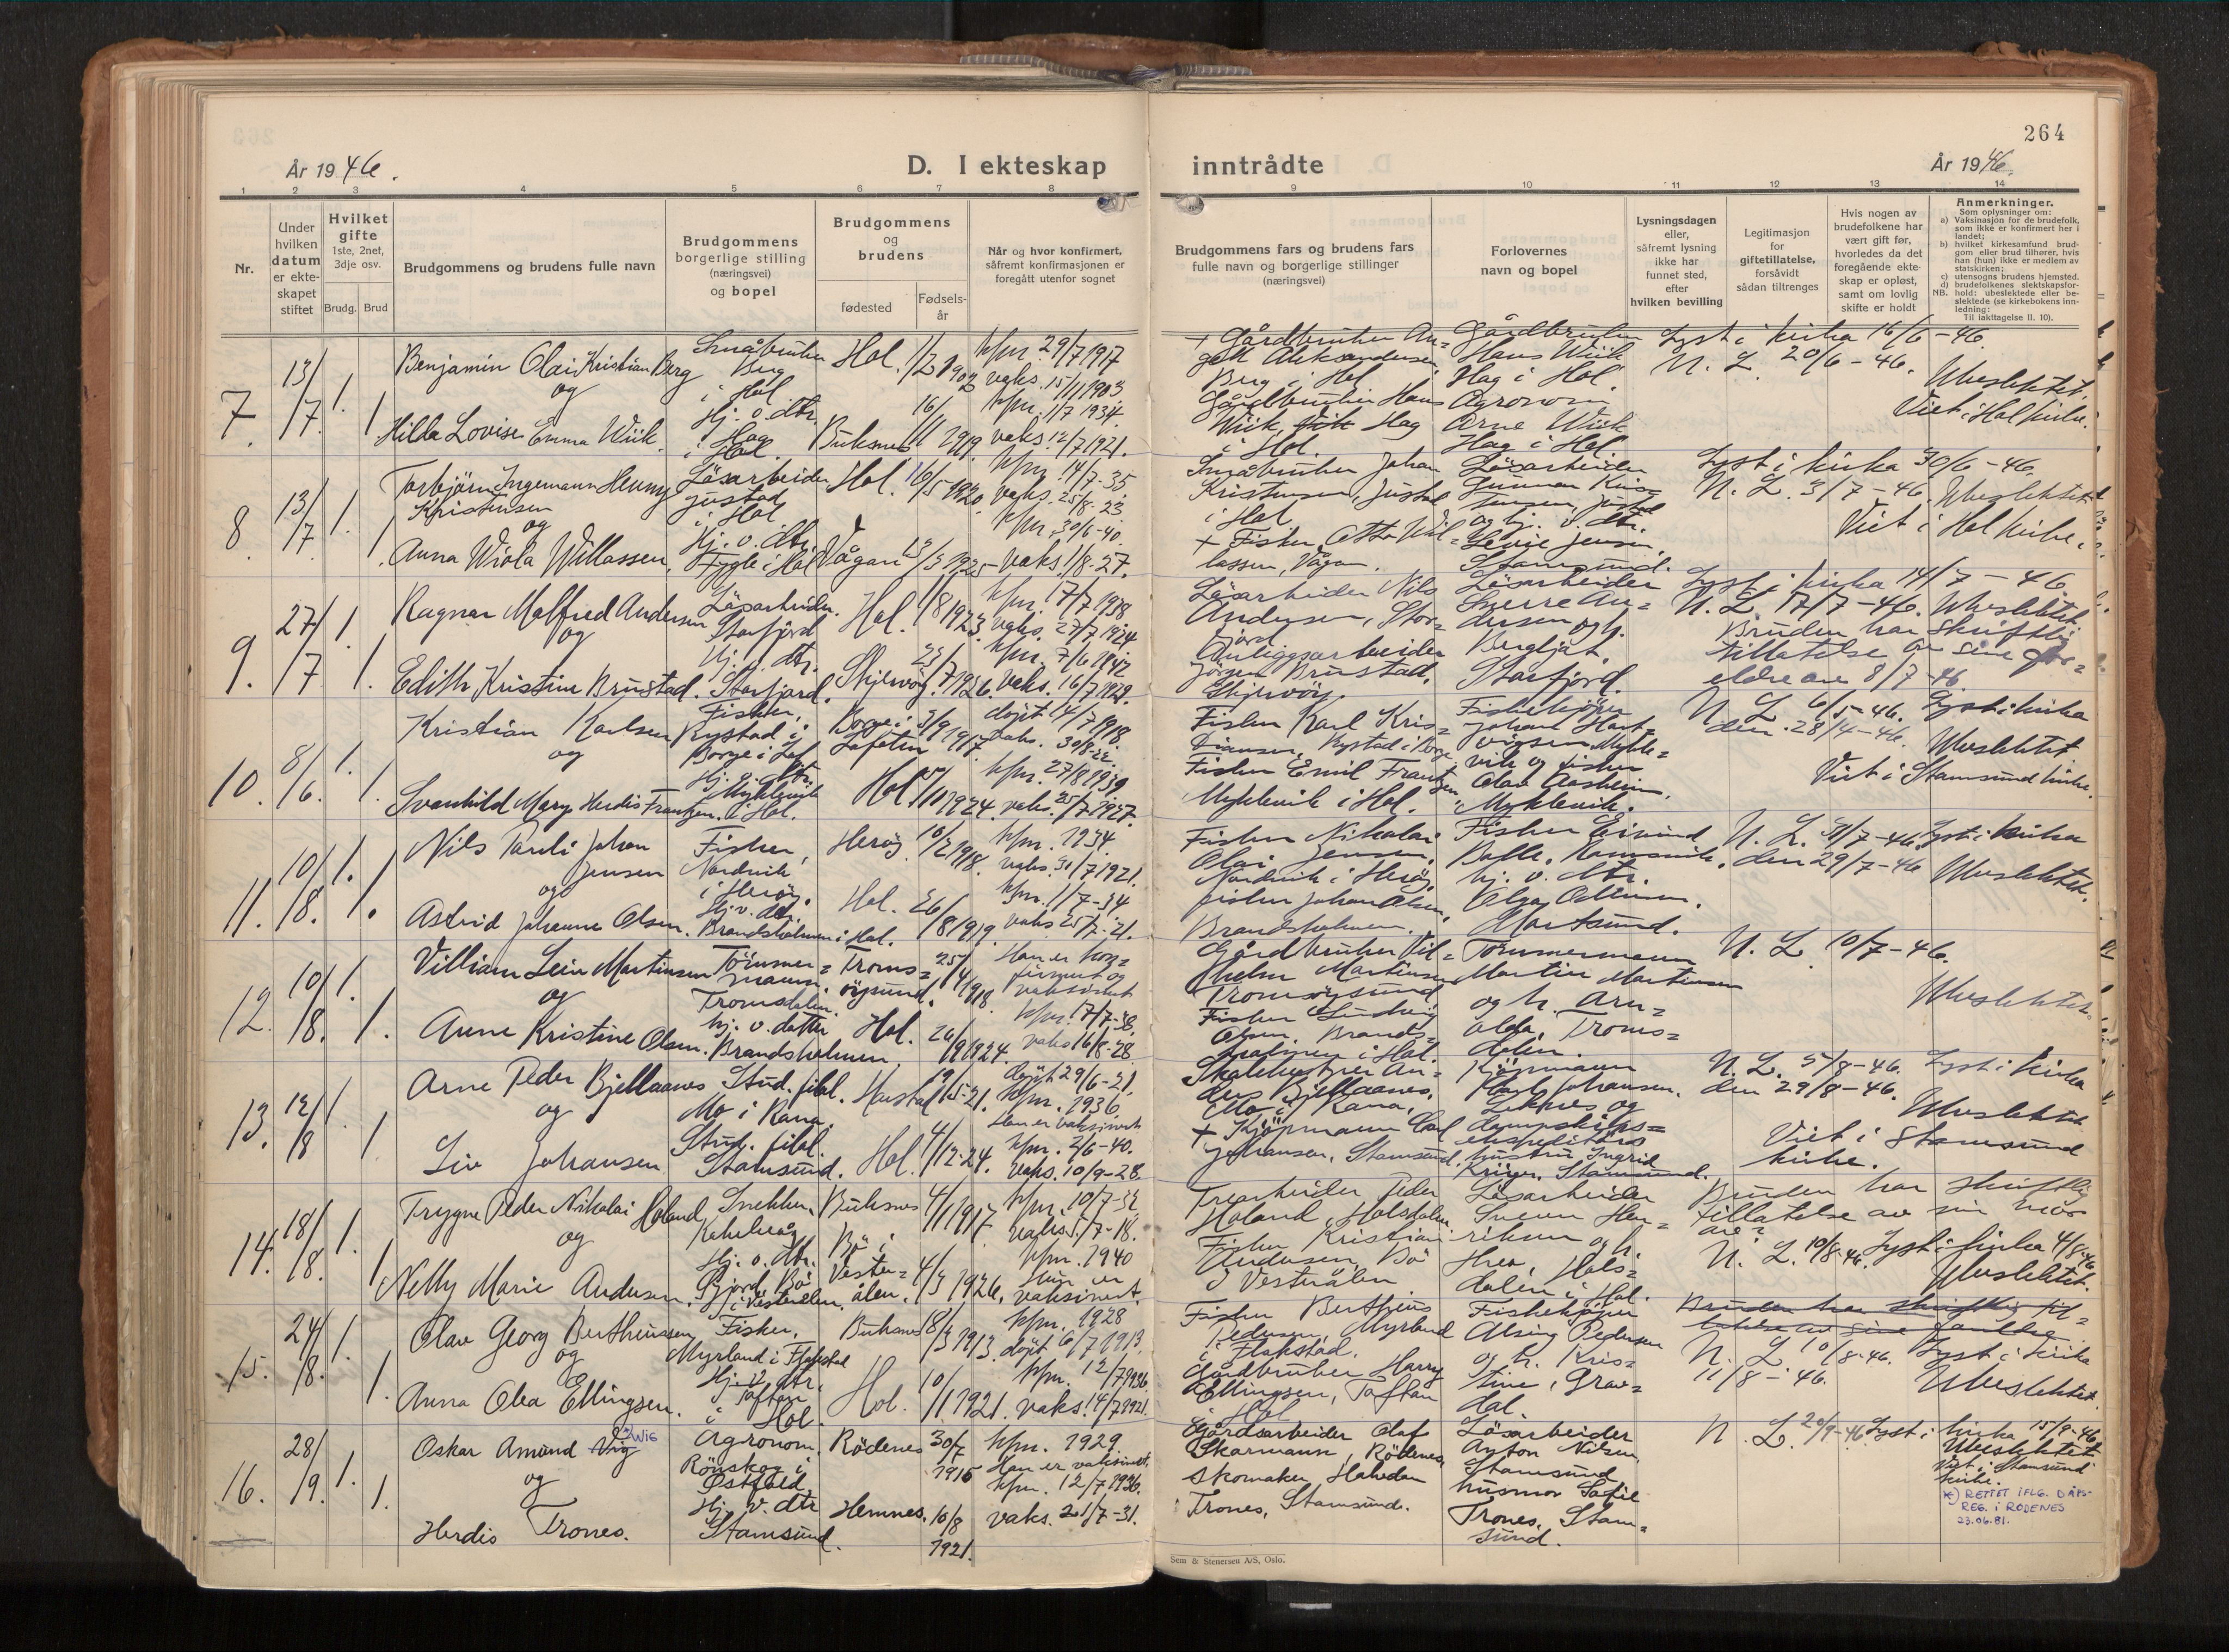 264
År 1946.
D. I ekteskap
inntrådte
År 1946.
1 2 3 4 5 6 7 8 9 10 11 12 13 14
Nr.
Under hvilken datum er ekteskapet stiftet
Hvilket gifte
1ste, 2net, 3dje osv.
Brudg. Brud
Brudgommens og brudens fulle navn
Brudgommens borgerlige stilling (næringsvei) og bopel
Brudgommens og brudens
fødested
Fødselsår
Når og hvor konfirmert, såfremt konfirmasjonen er foregått utenfor sognet
Brudgommens fars og brudens fars fulle navn og borgerlige stillinger (næringsvei)
Forlovernes navn og bopel
Lysningsdagen eller, såfremt lysning ikke har funnet sted, efter hvilken bevilling
Legitimasjon for giftetillatelse, forsåvidt sådan tiltrenges
Hvis nogen av brudefolkene har vært gift før, hvorledes da det foregående ekteskap er opløst, samt om lovlig skifte er holdt
Anmerkninger.
Som oplysninger om:
a) Vaksinasjon for de brudefolk, som ikke er konfirmert her i landet;
b) hvilket kirkesamfund brudgom eller brud tilhører, hvis han (hun) ikke er medlem av statskirken;
c) utensogns brudens hjemsted.
d) brudefolkenes slektskapsforhold: ubeslektede eller beslektede (se kirkebokens innledning:
NB.
Til iakttagelse II. 10).
7. 13/7. 1. 1
Benjamin Olai Kristian Berg
og
Hilda Lovise Emma Wiik.
Småbruker
Berg
i Hol
Hj. v. dtr.
Hag
i Hol.
Hol. 1/2 1902
Buksnes 16/11 1919
kfm. 29/7 1917
vaks. 15/11 1903
kfm. 1/7 1934.
vaks 12/7 1921.
+ Gårdbruker An=
gell Aleksandersen
Berg i Hol
Gårdbruker Hans
Wiik, Hag
i Hol.
Gårdbruker
Hans Wiik
Hag i Hol.
Agronom
Arne Wiik
Hag i Hol
Lyst i kirka 16/6 - 46.
N. L. 20/6 - 46.
Ubeslektet.
Viet i Hol kirke.
8. 13/7. 1. 1
Torbjörn Ingemann Henny
Kristensen
og
Anna Wiola Willassen.
Lösarbeider
Justad
i Hol
Hj. v. dtr.
Fygle i Hol
Hol. 16/5 1920
Vågan 13/3 1925
kfm. 14/7-35
vaks. 25/8-23
kfm. 30/6-40.
vaks. 1/8-27.
Småbruker Johan
Kristensen, Justad
i Hol.
+ Fisker Otto Wil=
lassen, Vågan.
Lösarbeider
Gunnar Kris=
tensen, Justad
og hj. v. dtr.
Jensen,
Stamsund.
Lyst i kirka 30/6 - 46.
N. L. 3/7 - 46. Ubeslektet
Viet i Hol kirke.
9. 27/7. 1. 1.
Ragnar Malfred Andersen
og
Edith Kristine Brustad.
Lösarbeider.
Storfjord
Hj. v. dtr.
Storfjord.
Hol. 1/8 1923.
Skjervöy. 23/7 1926.
kfm. 17/7 1938
vaks. 27/7 1924
kfm. 7/6 1942
vaks. 16/7 1929.
Lösarbeider Nils
Andersen, Stor=
fjord
Anleggsarbeider
Jörgen Brustad,
Skjervöy.
Lösarbeider
Sverre An=
dersen og h.
Bergljot,
Storfjord.
Lyst i kirka 14/7 - 46.
N. L. 17/7 - 46. Ubeslektet
Bruden har skriftlig
tillatelse av sine for=
eldre av 8/7 - 46
10. 8/6. 1. 1.
Kristian Karlsen
og
Svanhild Mary Herdis Frantzen.
Fisker,
Rystad i
Borge i Lof.
Hj. v. dtr.
Myklevik
i Hol.
Borge i
Lofoten 3/9 1917
Hol 11 1924.
döpt 14/7 1918
vaks. 30/8-22.
kfm. 27/8 1939
vaks. 25/7 1927.
Fisker Karl Kris=
tiansen, Rystad i Borge
Fisker Emil Frantzen
Myklevik i Hol.
Fiskekjöper
Johan Hart=
vigsen, Mykle=
vik og fisker
Olav Aasheim,
Myklevik.
N. L. 6/5-46. Lyst i kirka
den 28/4-46.
Ubeslektet
Viet i Stamsund kirke.
11. 10/8. 1. 1.
Nils Pareli Johan
Jensen
og
Astrid Johanne Olsen.
Fisker,
Nordvik
i Heröy.
Hj. v. dtr.
Brandsholmen i Hol.
Heröy 10/2 1918.
Hol. 26/8 1919
kfm. 1934.
vaks. 30/7 1921.
kfm. 1/7-34
vaks 25/7-21.
Fisker Nikolai
Olai Jensen,
Nordvik i Heröy,
fisker Johan Olsen,
Brandsholmen.
Fisker Eivind
Balle,
hj. v. dtr.
Olga
Mortsund.
N. L. 31/7-46. Lyst i kirka
den 29/7-46
Ubeslektet.
12. 10/8. 1. 1.
Villiam Lein Martinsen
og
Anne Kristine Olsen.
Tömmer=
mann.
Tromsdalen.
hj. v. datter
Brandsholmen.
Troms=
öysund. 25/4 1918.
Hol. 26/9 1924.
Han er kon=
firmert og
vaksinert
kfm. 17/7-38,
vaks 16/8-28
Gårdbruker Vil=
helm Martinsen
Tromsöysund
Fisker Ludvig
Olsen, Brands=
holmen i Hol.
Tömmermann
Martin Martinsen
og h. Arn=
olda, Troms=
dalen.
N. L. 10/7-46.
Ubeslektet.
13. 12/8 1 1
Arne Peder Bjellaanes
og
Liv Johansen
Stud. filol.
Mo i Rana.
Stud. filol.
Stamsund.
Harstad 19/5-21.
Hol. 4/12-24.
döpt 29/6-21.
kfm. 1936.
Han er vaksinert
kfm. 2/6-40.
vaks. 10/9-28.
Skolebestyrer An=
ders Bjellaanes,
Mo i Rana,
+ Kjöpmann Carl
Johansen, Stamsund.
Kjöpmann
Karl Johansen,
Leknes og
dampskibs=
ekspeditörs
hustru Ingrid
Krüger, Stamsund.
N. L. 5/8-46. Lyst i kirka
den 29/8-46.
Ubeslektet
Viet i Stamsund
kirke.
14. 18/8. 1. 1
Trygve Peder Nikolai Holand
og
Nelly Marie Andersen.
Snekker,
Kabelvåg
Hj. v. dtr.
Fjord, Bö
i Vesterålen.
Buksnes 4/1 1917
Bö i
Vester=
ålen. 4/3 1926.
kfm. 10/7-32
vaks. 5/7-18.
kfm. 1940
Hun er
vaksinert.
Trearbeider Peder
Holand, Holsdalen.
Fisker Kristian
Andersen, Bö
i Vesterålen
Lösarbeider
Sverre Hen=
riksen og h.
Thea, Hols=
dalen i Hol.
Bruden har skriftlig
tillatelse av sin mor
N. L. 10/8-46. Lyst i kirka 4/8-46
Ubeslektet.
15. 24/8. 1. 1.
Olav Georg Bertheussen
og
Anna Olea Ellingsen.
Fisker,
Myrland i Flakstad
Hj. v. dtr.
Toften
i Hol.
Buksnes 18/3 1913.
Hol. 10/11 1921.
kfm. 1928
döpt 6/7 1913.
kfm. 12/7 1936.
vaks. 14/7 1921.
Fisker Bertheus
Pedersen, Myrland
i Flakstad.
Gårdbruker Harry
Ellingsen, Toften
i Hol
Fiskekjöper
Alsing Pedersen
og h. Kris=
tine, Grav=
dal.
Bruden har skriftlig til=
latelse av sine foreldre
N. L. 10/8-46. Lyst i kirka
11/8-46.
Ubeslektet.
16. 28/9. 1. 1.
Oskar Amund Vig *WIG
og
Herdis Trones.
Agronom,
Rönskog i
Östfold.
Hj. v. dtr
Stamsund.
Rödenes 30/7 1915
Hemnes. 16/8 1921.
kfm. 1929
Han er vaksinert.
kfm. 12/7 1936.
vaks. 21/7-31.
Gårdsarbeider Olaf
Skarmann, Rödenes
Skomaker Hakedan
Trones, Stamsund.
Lösarbeider
Anton Nilsen,
Stamsund
husmor Sofie
Trones, Stam=
sund.
N. L. 20/9-46 Lyst i kirka 15/9-46
Ubeslektet
Viet i Stamsund
kirke.
*) RETTET IFLG. DÅPS-
REG. I RØDENES
23.06.81.
Sem & Stenersen A/S, Oslo.